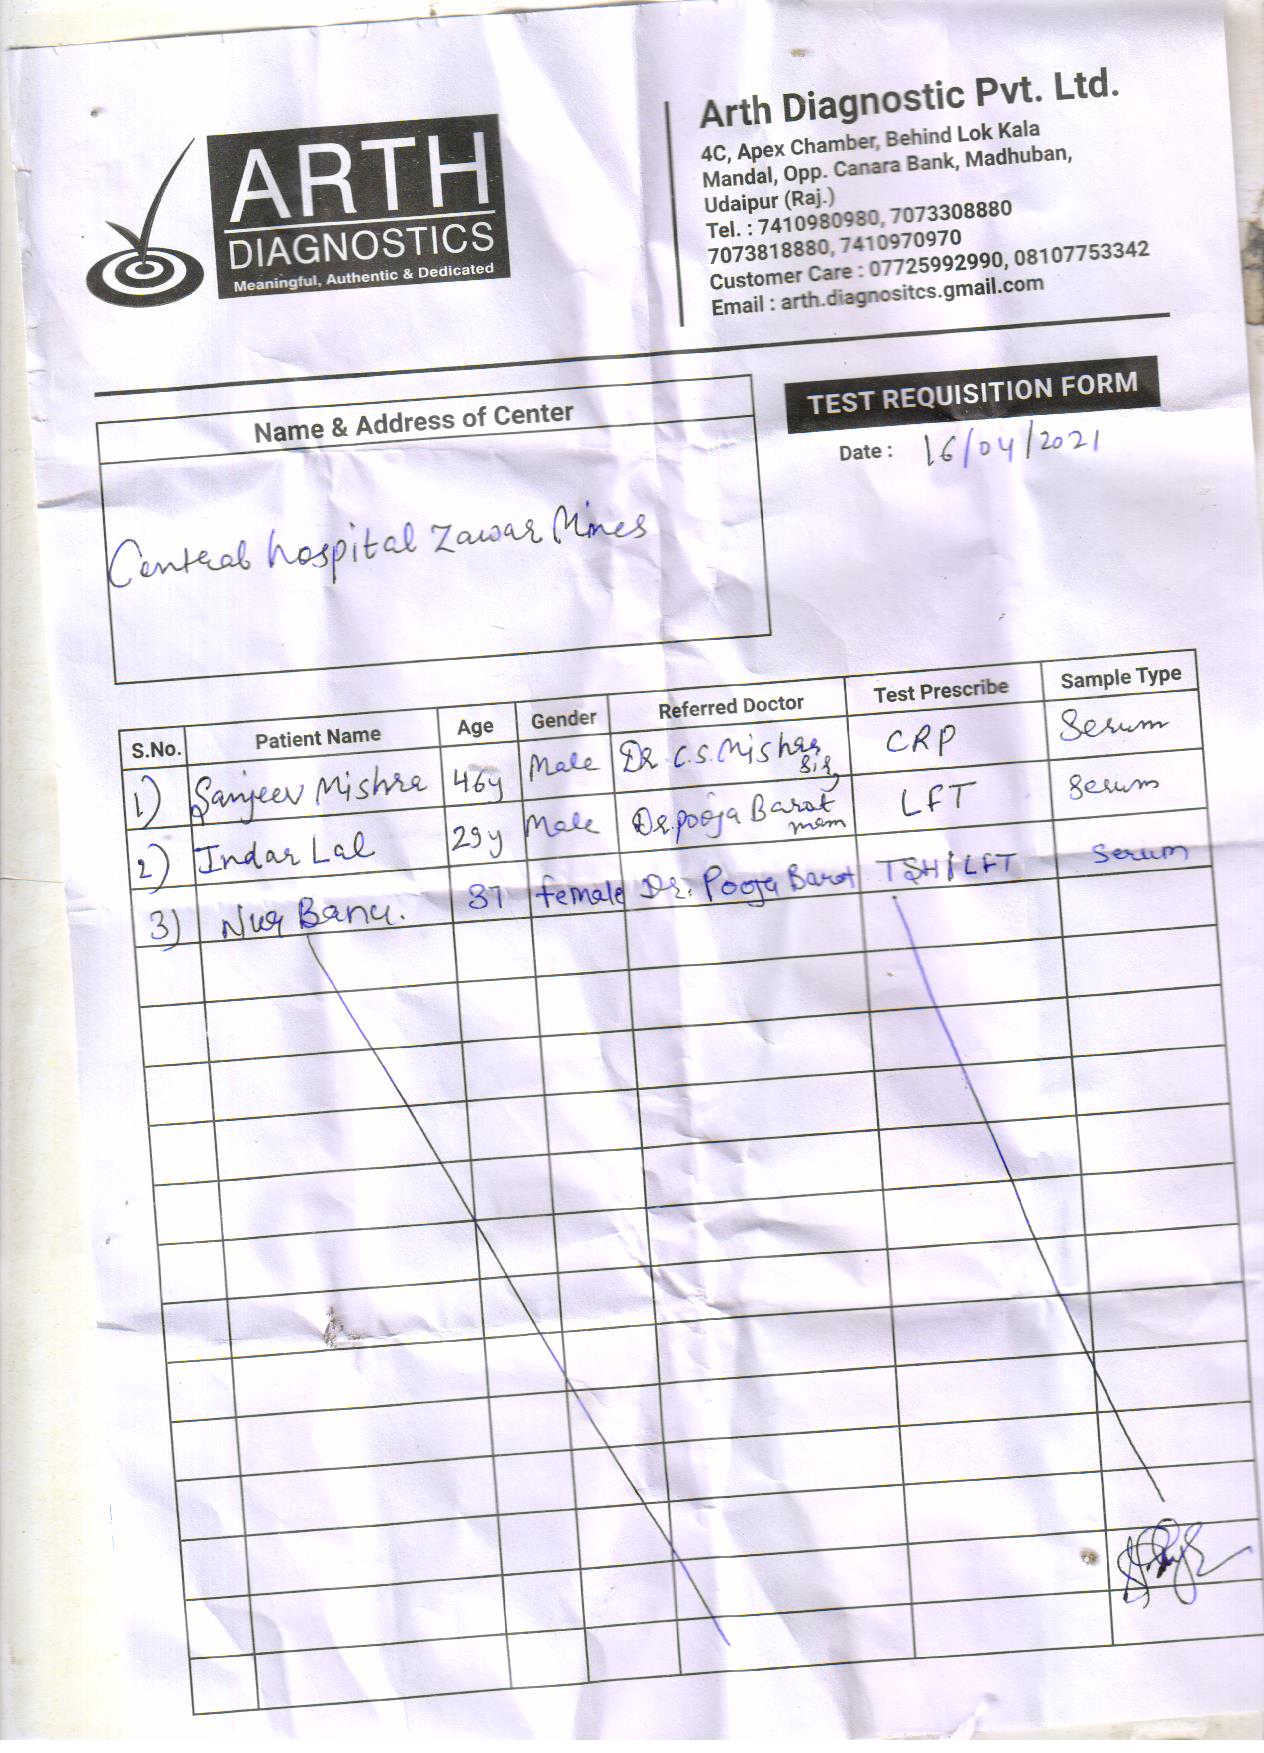 ARTH
DIAGNOSTICS
Meaningful, Authentic & Dedicated
Arth Diagnostic Pvt. Ltd.
4C, Apex Chamber, Behind Lok Kala
Mandal, Opp. Canara Bank, Madhuban,
Udaipur (Raj.)
Tel. : 7410980980, 7073308880
7073818880, 7410970970
Customer Care : 07725992990, 08107753342
Email : arth.diagnositcs.gmail.com
Name & Address of Center
Central hospital Zawar Mines
TEST REQUISITION FORM
Date : 16/04/2021
S.No. Patient Name Age Gender Referred Doctor Test Prescribe Sample Type
1) Sanjeev Mishra 46y Male Dr. C.S. Mishra Sir CRP Serum
2) Indar Lal 29y Male Dr. pooja Barot mam LFT Serum
3) Nur Banu. 37 female Dr. Pooja Barot TSH, LFT Serum